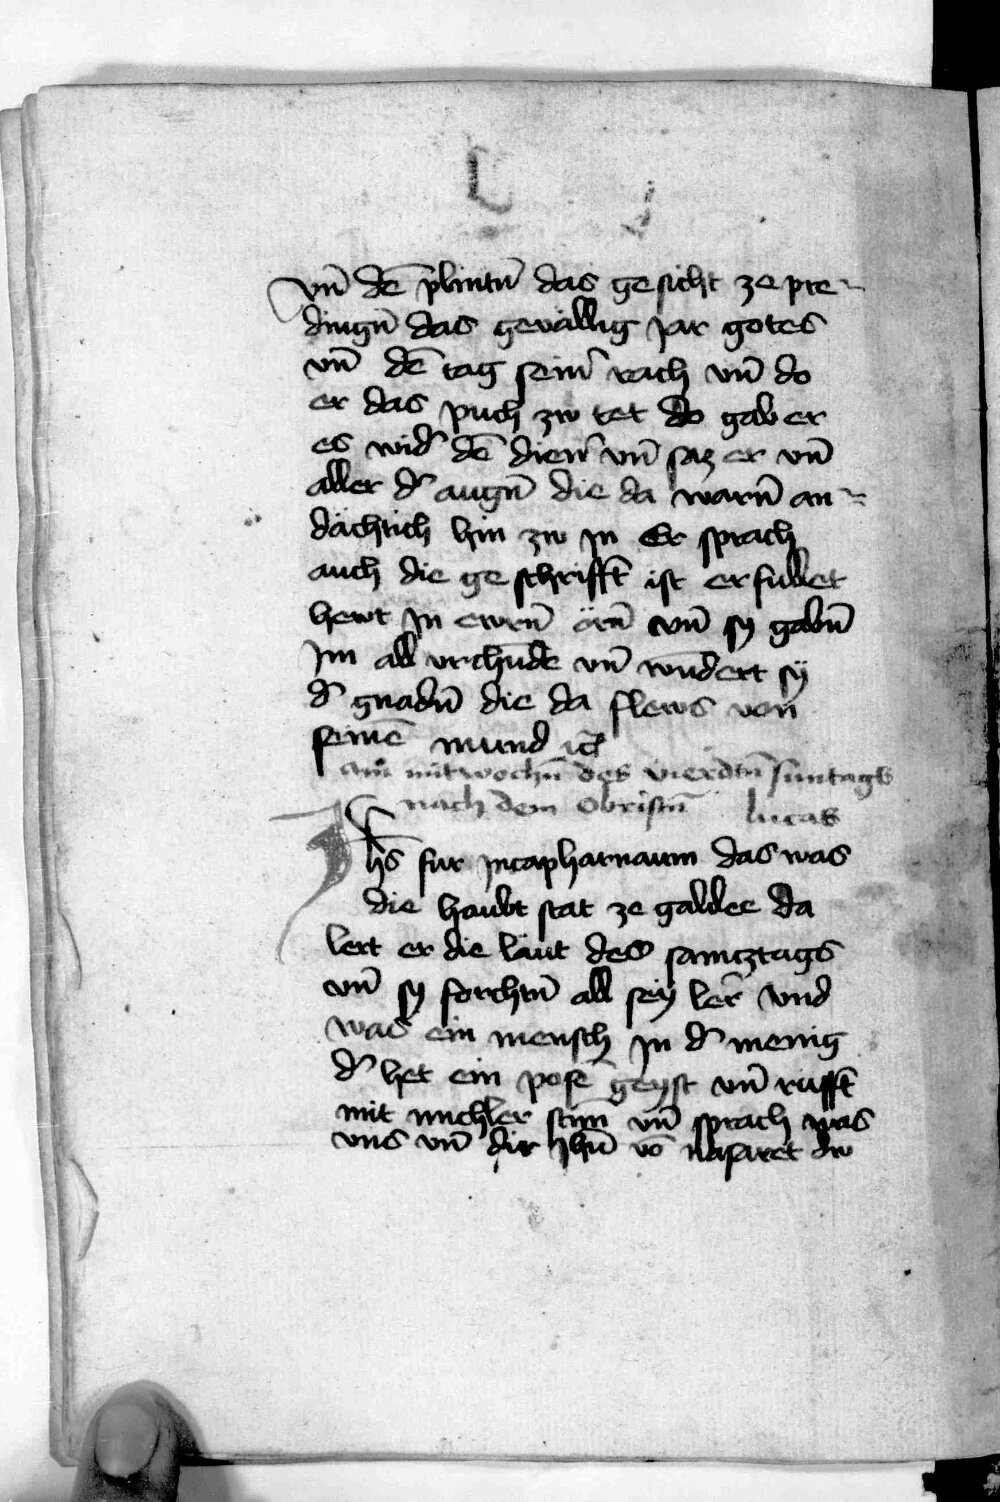 vn̄ dē plintn̄ das gesicht ze pre-
dingn̄ das gevällig jar gotes
vn̄ dē tag sein̄ rach vn̄ do
er das puch zw tet do gab er
es wid̄ dē dien̄ vn̄ saz er vn̄
aller d̄ augn̄ die da warn̄ an-
dächtich hin zw in Er sprach
auch die geschrifft ist erfullet
hewt in ewrn̄ örn̄ vn̄ sy gabn̄
im all vrchūde vn̄ wūdert sy
d̄ gnadn̄ die da flews von
seinē mund
am mitwochn̄ des vierdtn̄ suntags
nach dem Obristn̄ lucas
Jhs̄ fur incapharnaum das was
die haubt stat ze galilee da
lert er die läut des samcztags
vn̄ sy forchtn̄ all sey ler̄ vnd
was ein mensch in d̄ menig
d̄ het ein posē geyst vn̄ rüfft
mit michler stim̄ vn̄ sprach was
vns vn̄ dir jhū vō Nasaret dw